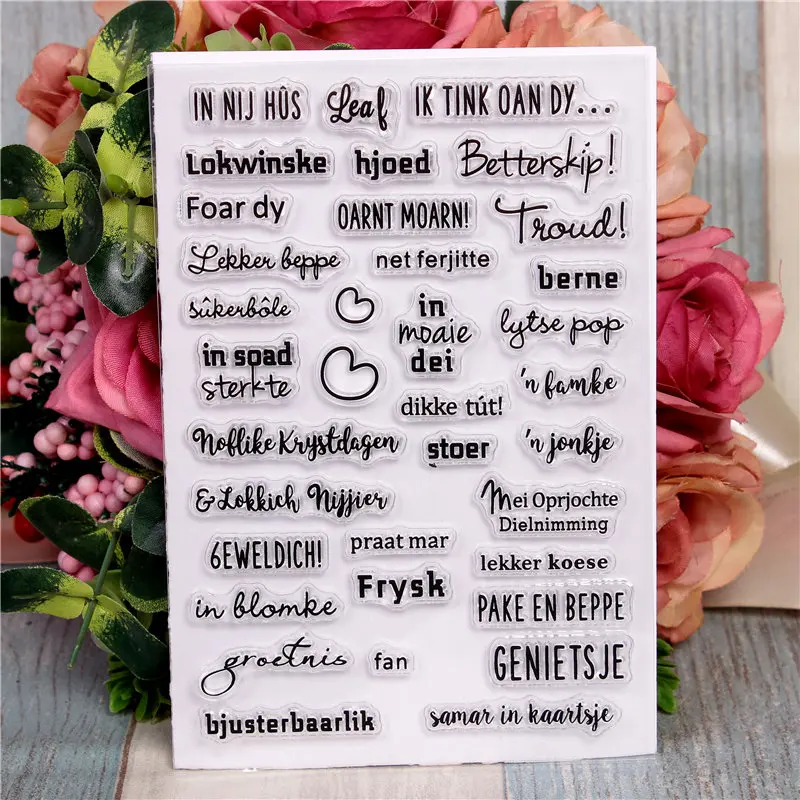 IN NIJ HÛS
Leaf
IK TINK OAN DY...
Lokwinske
hjoed
Betterskip!
Foar dy
OARNT MOARN!
Troud!
Lekker beppe
net ferjitte
berne
sûkerbôle
in
moaie
dei
lytse pop
in soad
sterkte
'n famke
dikke tút!
Noflike Krystdagen
stoer
'n jonkje
& Lokkich Nijjier
Mei Oprjochte
Dielnimming
GEWELDICH!
praat mar
lekker koese
Frysk
in blomke
PAKE EN BEPPE
groetnis
fan
GENIETSJE
bjusterbaarlik
samar in kaartsje